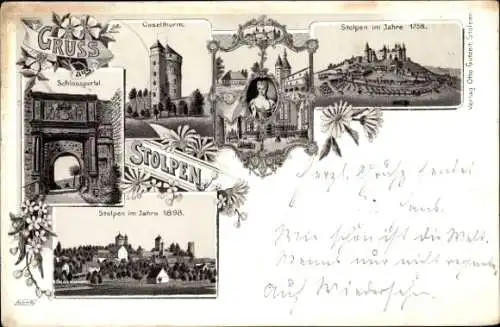 GRUSS
aus
Coselthurm.
Stolpen im Jahre 1758.
Schlossportal.
STOLPEN
Stolpen im Jahre 1898.
Verlag Otto Gutzeit, Stolpen
Herzl. Grüße sendet
Wie schön ist die Welt.
Wenns nur nicht regnete
Auf Wiedersehn.